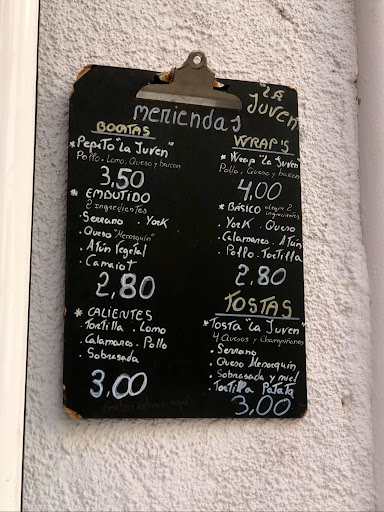 meriendas
"LA JUVEN"
BOCATAS
* Pepito "La Juven"
Pollo-Lomo, Queso y bacon
3,50
* EMBUTIDO
2 ingredientes
- Serrano . York
- Queso "Menorquín"
- Atún Vegetal
- Camaiot
2,80
* CALIENTES
- Tortilla . Lomo
- Calamares . Pollo
- Sobrasada
3,00
WRAP'S
* Wrap "La Juven"
Pollo, Queso y bacon
4,00
* BÁSICO alegre 2 ingredientes
- York . Queso
- Calamares . Atún
- Pollo . Tortilla
2,80
TOSTAS
* Tosta "La Juven"
4 Quesos y Champiñones
- Serrano
- Queso Menorquín
- Sobrasada y miel
- Tortilla Patata
3,00